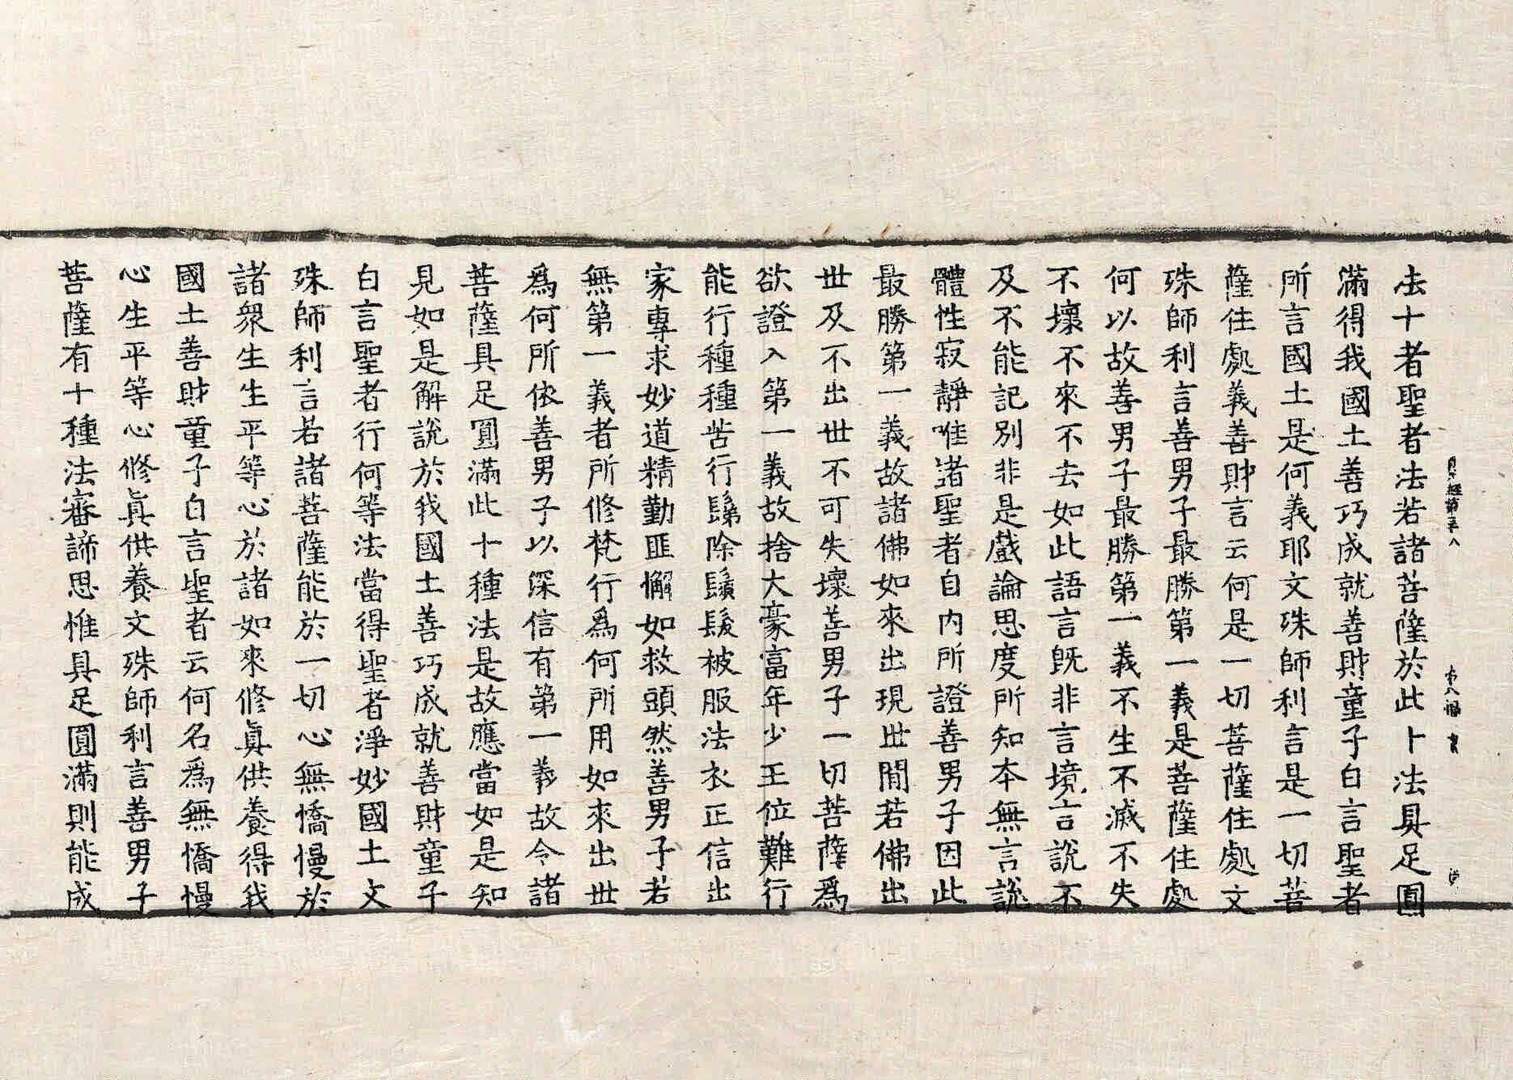 法十者聖者法若諸菩薩於此十法具足圓
滿得我國土善巧成就善財童子白言聖者
所言國土是何義耶文殊師利言是一切菩
薩住處義善財言云何是一切菩薩住處文
殊師利言善男子最勝第一義是菩薩住處
何以故善男子最勝第一義不生不滅不失
不壞不來不去如此語言旣非言境言說不
及不能記別非是戲論思度所知本無言說
體性寂靜唯諸聖者自內所證善男子因此
最勝第一義故諸佛如來出現世間若佛出
世及不出世不可失壞善男子一切菩薩爲
欲證入第一義故捨大豪富年少王位難行
能行種種苦行鬀除鬚髮被服法衣正信出
家專求妙道精勤匪懈如救頭然善男子若
無第一義者所修梵行爲何所用如來出世
爲何所依善男子以深信有第一義故令諸
菩薩具足圓滿此十種法是故應當如是知
見如是解說於我國土善巧成就善財童子
白言聖者行何等法當得聖者淨妙國土文
殊師利言若諸菩薩能於一切心無憍慢於
諸衆生生平等心於諸如來修眞供養得我
國土善財童子白言聖者云何名爲無憍慢
心生平等心修眞供養文殊師利言善男子
菩薩有十種法審諦思惟具足圓滿則能成